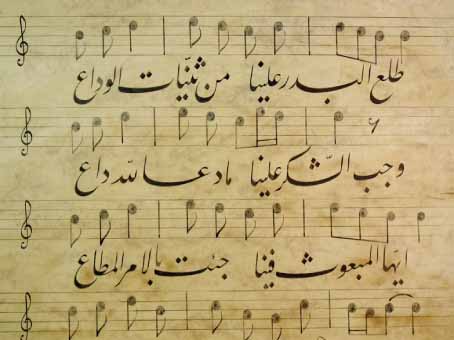 طلع البدر علينا من ثنيّات الوداع
وجب الشّكر علينا ما دعا لله داع
ايّها المبعوث فينا جئت بالامر المطاع